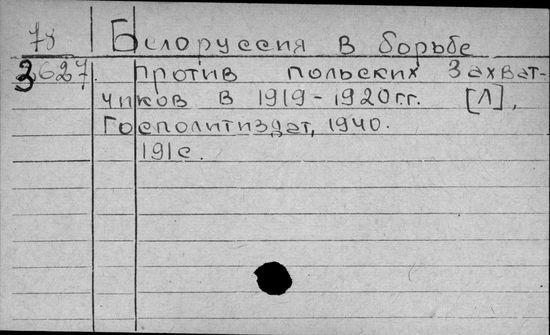 78 Белоруссия в борьбе
3627. против польских Захват-
чиков в 1919-1920г.г. [Л],
Госполитиздат, 1940.
191с.